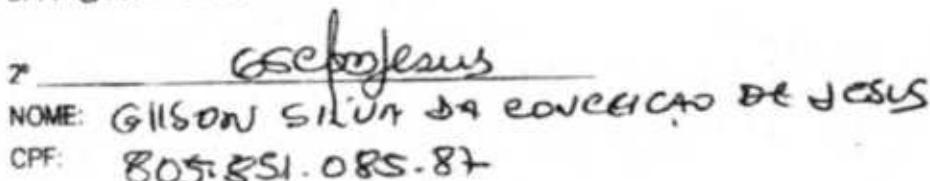 7ª GSCdeJesus
NOME: GIlSON SILVA DA CONCEICAO DE JESUS
CPF: 805.851.085-87